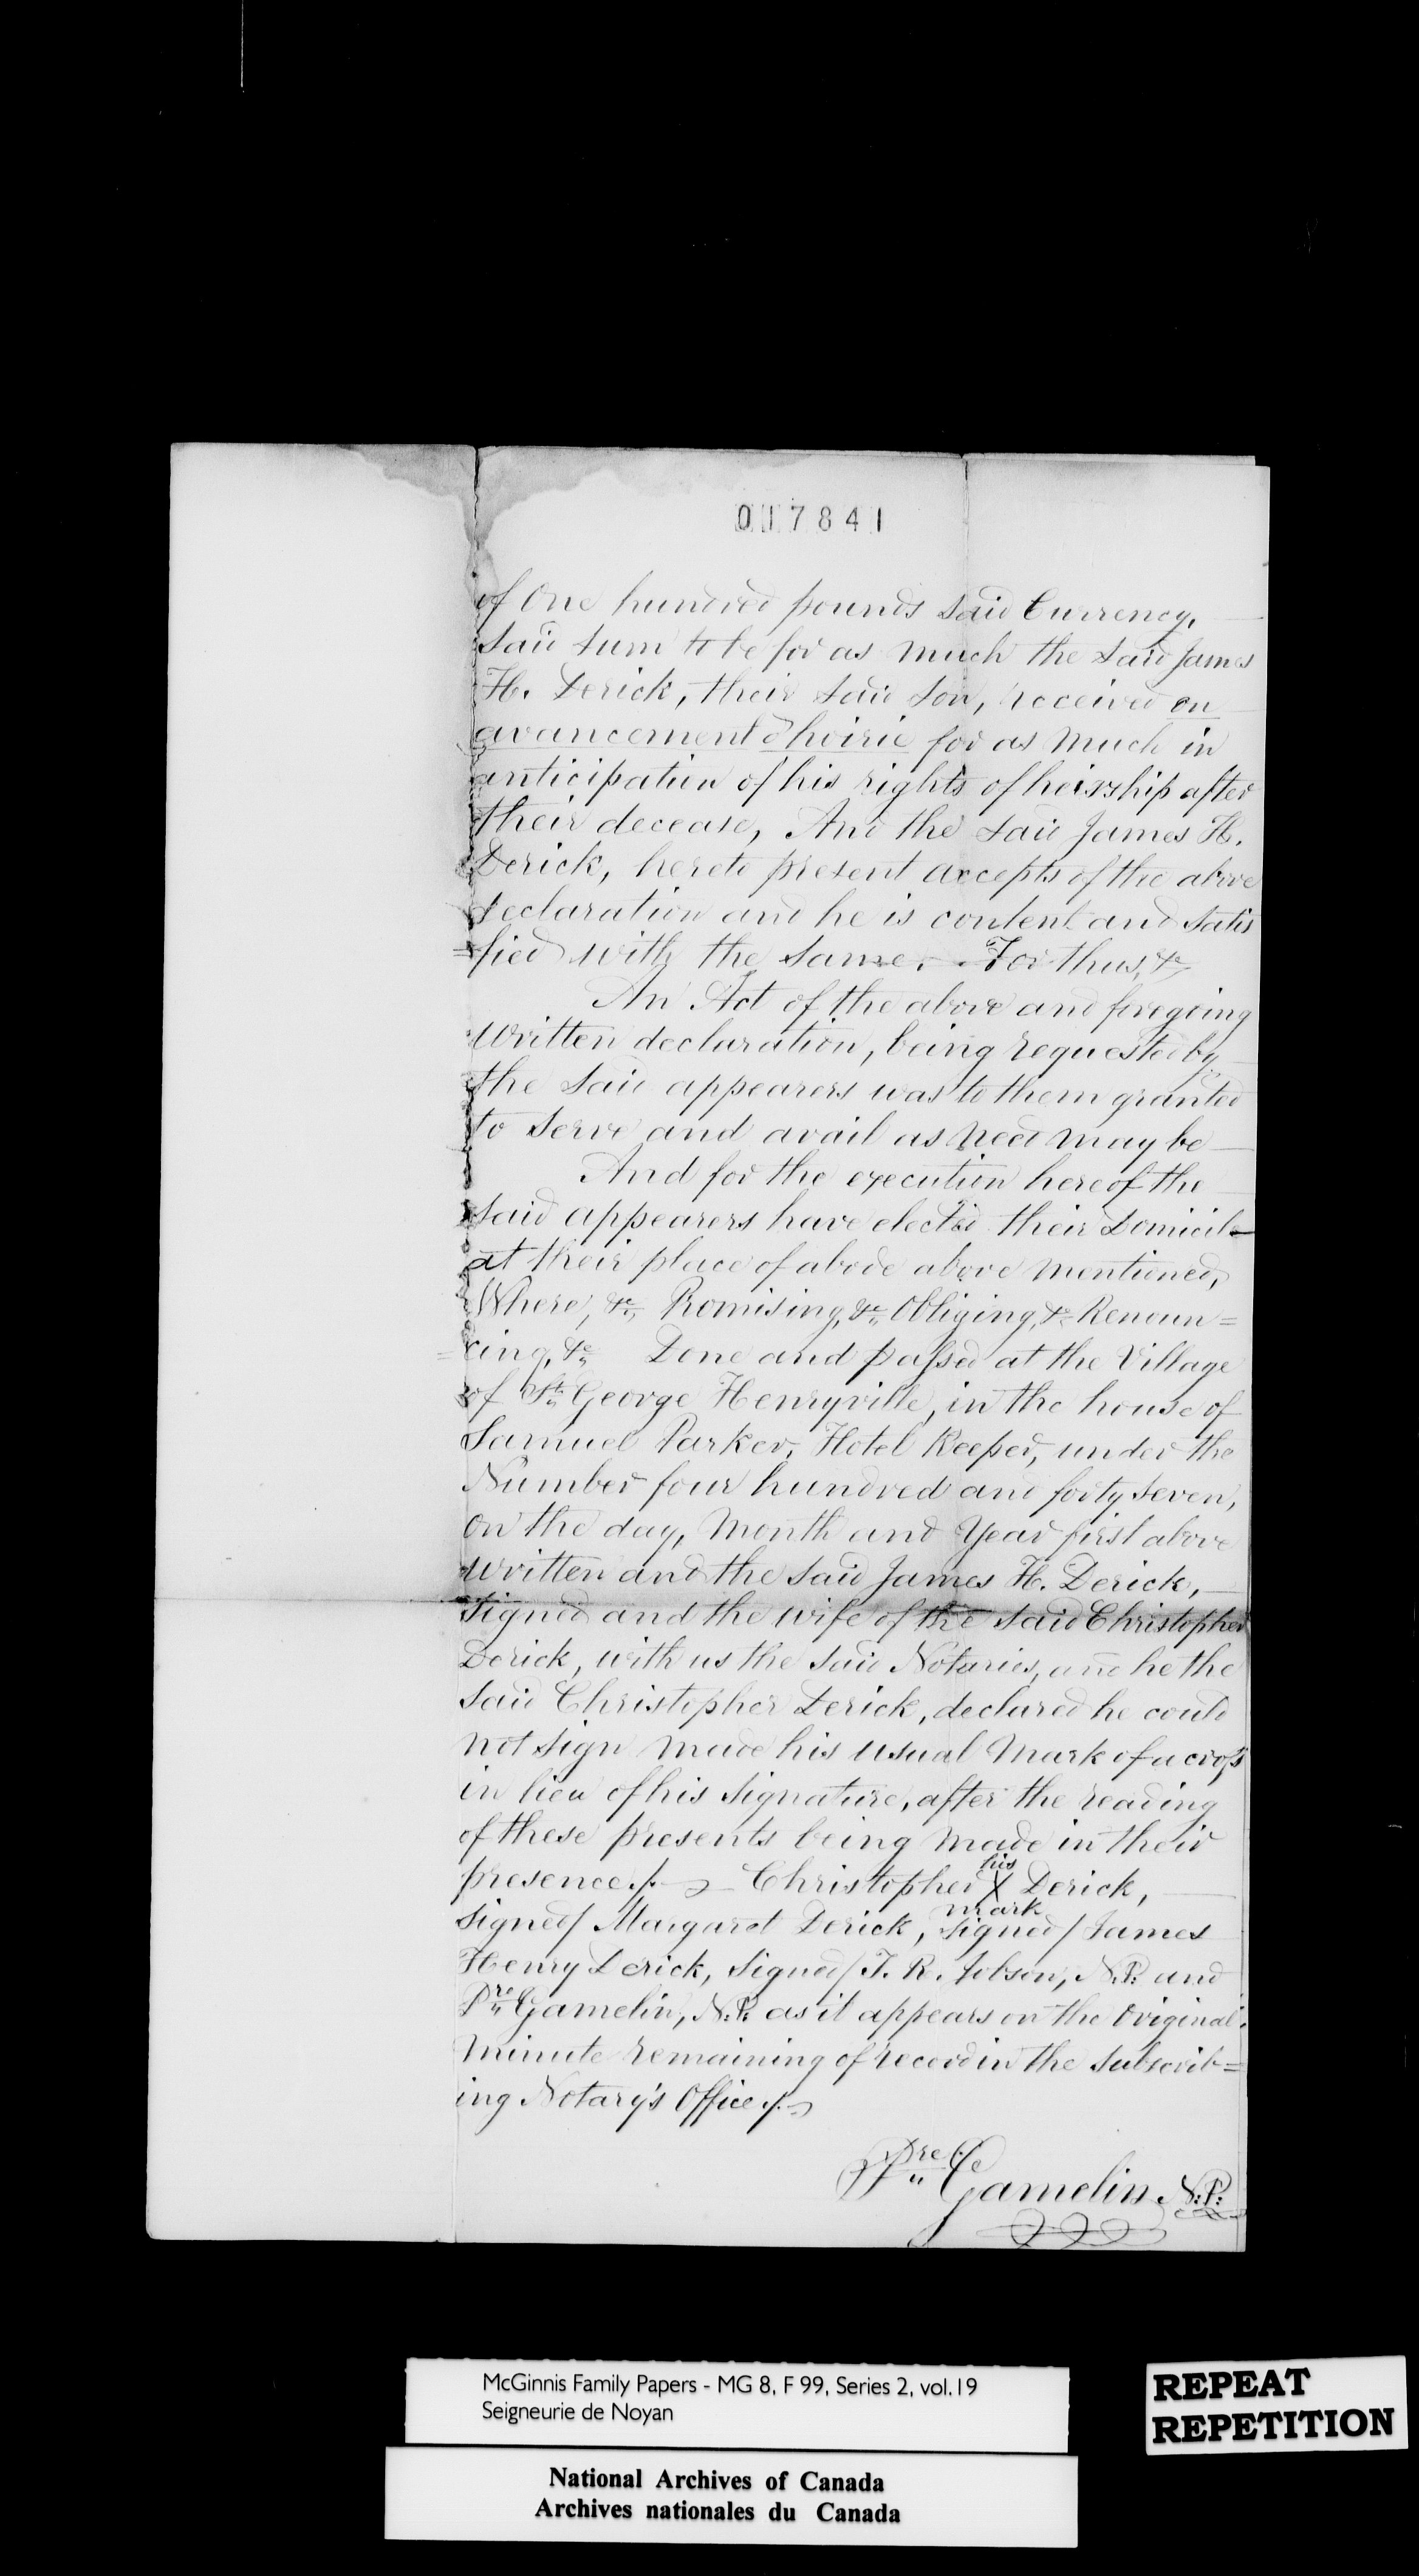 017841
of One hundred pounds said Currency,
said sum to be for as much the said James
H. Derick, their said son, received en
avancement d'hoirie for as much in
anticipation of his rights of heirship after
their decease, And the said James H.
Derick, hereto present accepts of the above
declaration and he is content and satis
=fied with the same. For thus, &c
An Act of the above and foregoing
written declaration, being requested by
the said appearers was to them granted
to serve and avail as need may be
And for the execution hereof the
said appearers have elected their Domicile
at their place of abode above mentioned,
Where, &c, Promising, &c, Obliging, &c Renoun=
=cing, &c, Done and passed at the Village
of St. George Henryville, in the house of
Samuel Parker, Hotel Keeper, under the
Number four hundred and forty seven,
on the day, Month and Year first above
written and the said James H. Derick,
signed and the wife of the said Christopher
Derick, with us the said Notaries, and he the
said Christopher Derick, declared he could
not sign made his usual Mark of a cross
in lieu of his signature, after the reading
of these presents being made in their
presence ./. Christopher his X mark Derick,
signed/ Margaret Derick, signed/ James
Henry Derick, signed/ T. R. Jobson, N.P. and
Pre Gamelin, N.P. as it appears on the Original
Minute remaining of record in the subscrib=
ing Notary's Office ./.
Pre Gamelin N.P.
McGinnis Family Papers - MG 8, F 99, Series 2, vol.19
Seigneurie de Noyan
REPEAT
REPETITION
National Archives of Canada
Archives nationales du Canada